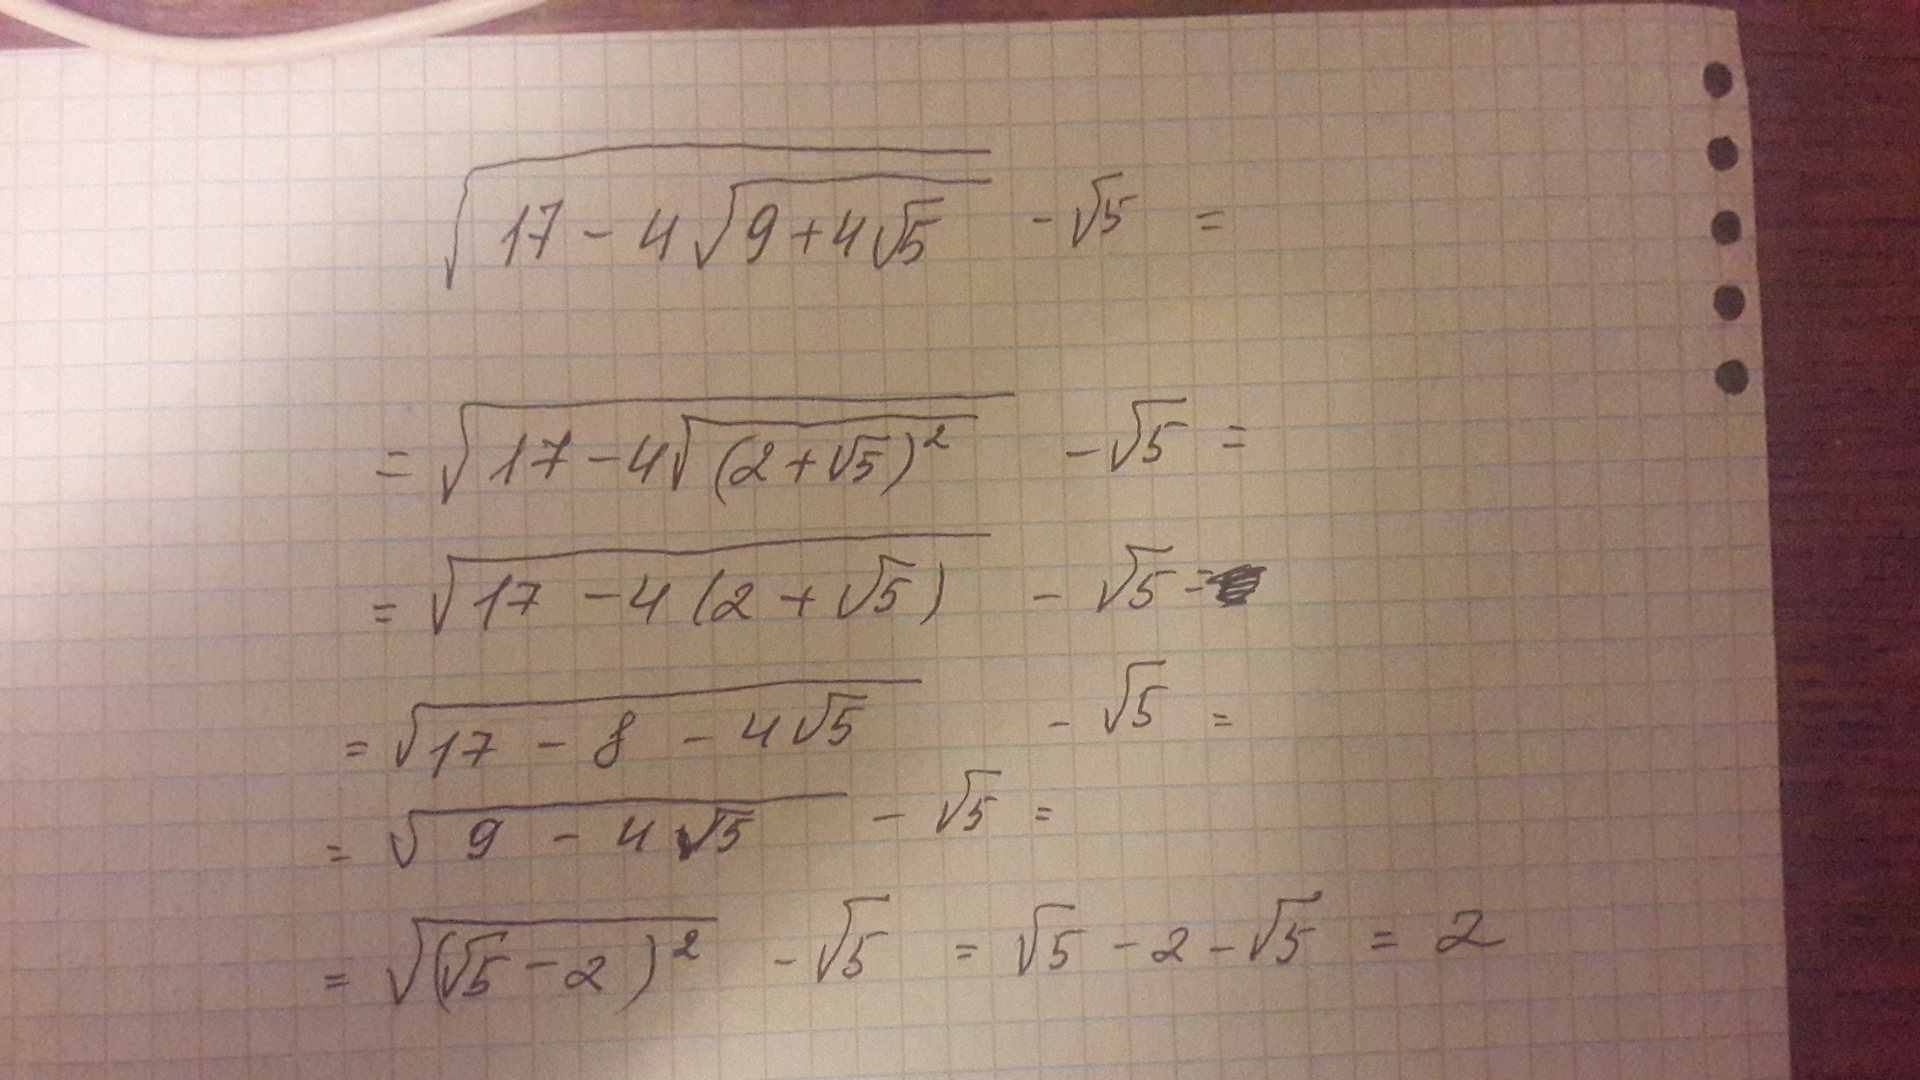 √(17 - 4√(9 + 4√5)) - √5 =
= √(17 - 4√((2 + √5)²)) - √5 =
= √(17 - 4(2 + √5)) - √5 =
= √(17 - 8 - 4√5) - √5 =
= √(9 - 4√5) - √5 =
= √((√5 - 2)²) - √5 = √5 - 2 - √5 = 2